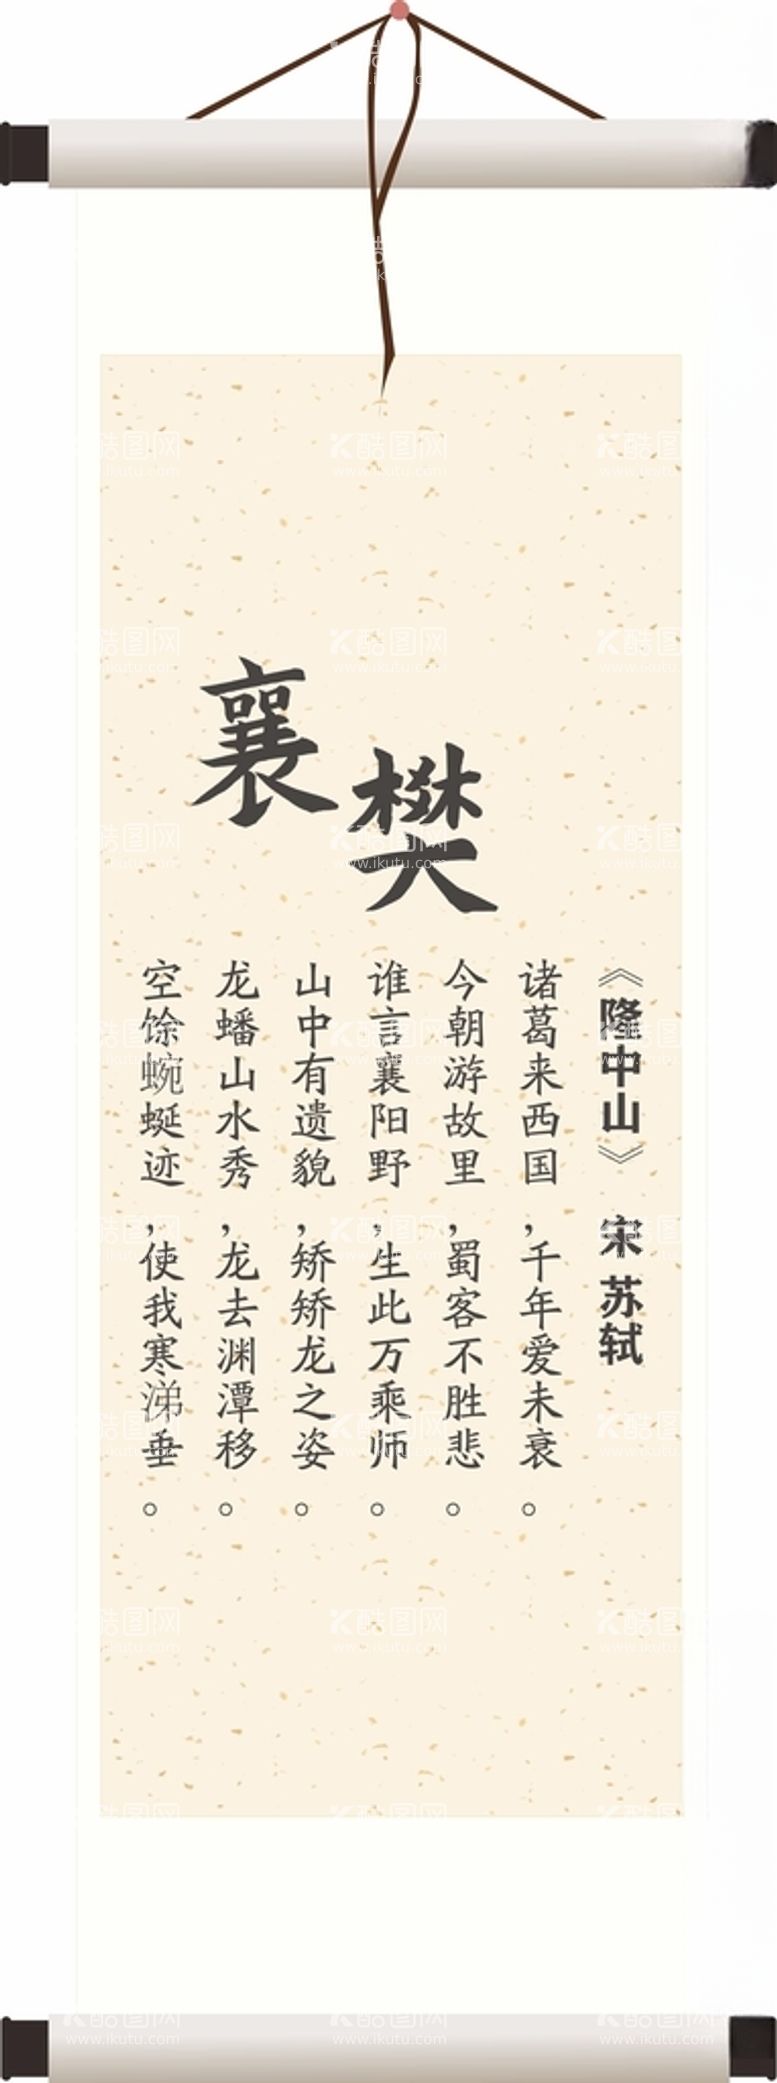 襄樊
《隆中山》 宋 苏轼
诸葛来西国,千年爱未衰。
今朝游故里,蜀客不胜悲。
谁言襄阳野,生此万乘师。
山中有遗貌,矫矫龙之姿。
龙蟠山水秀,龙去渊潭移。
空馀蜿蜒迹,使我寒涕垂。
酷图网
www.ikutu.com